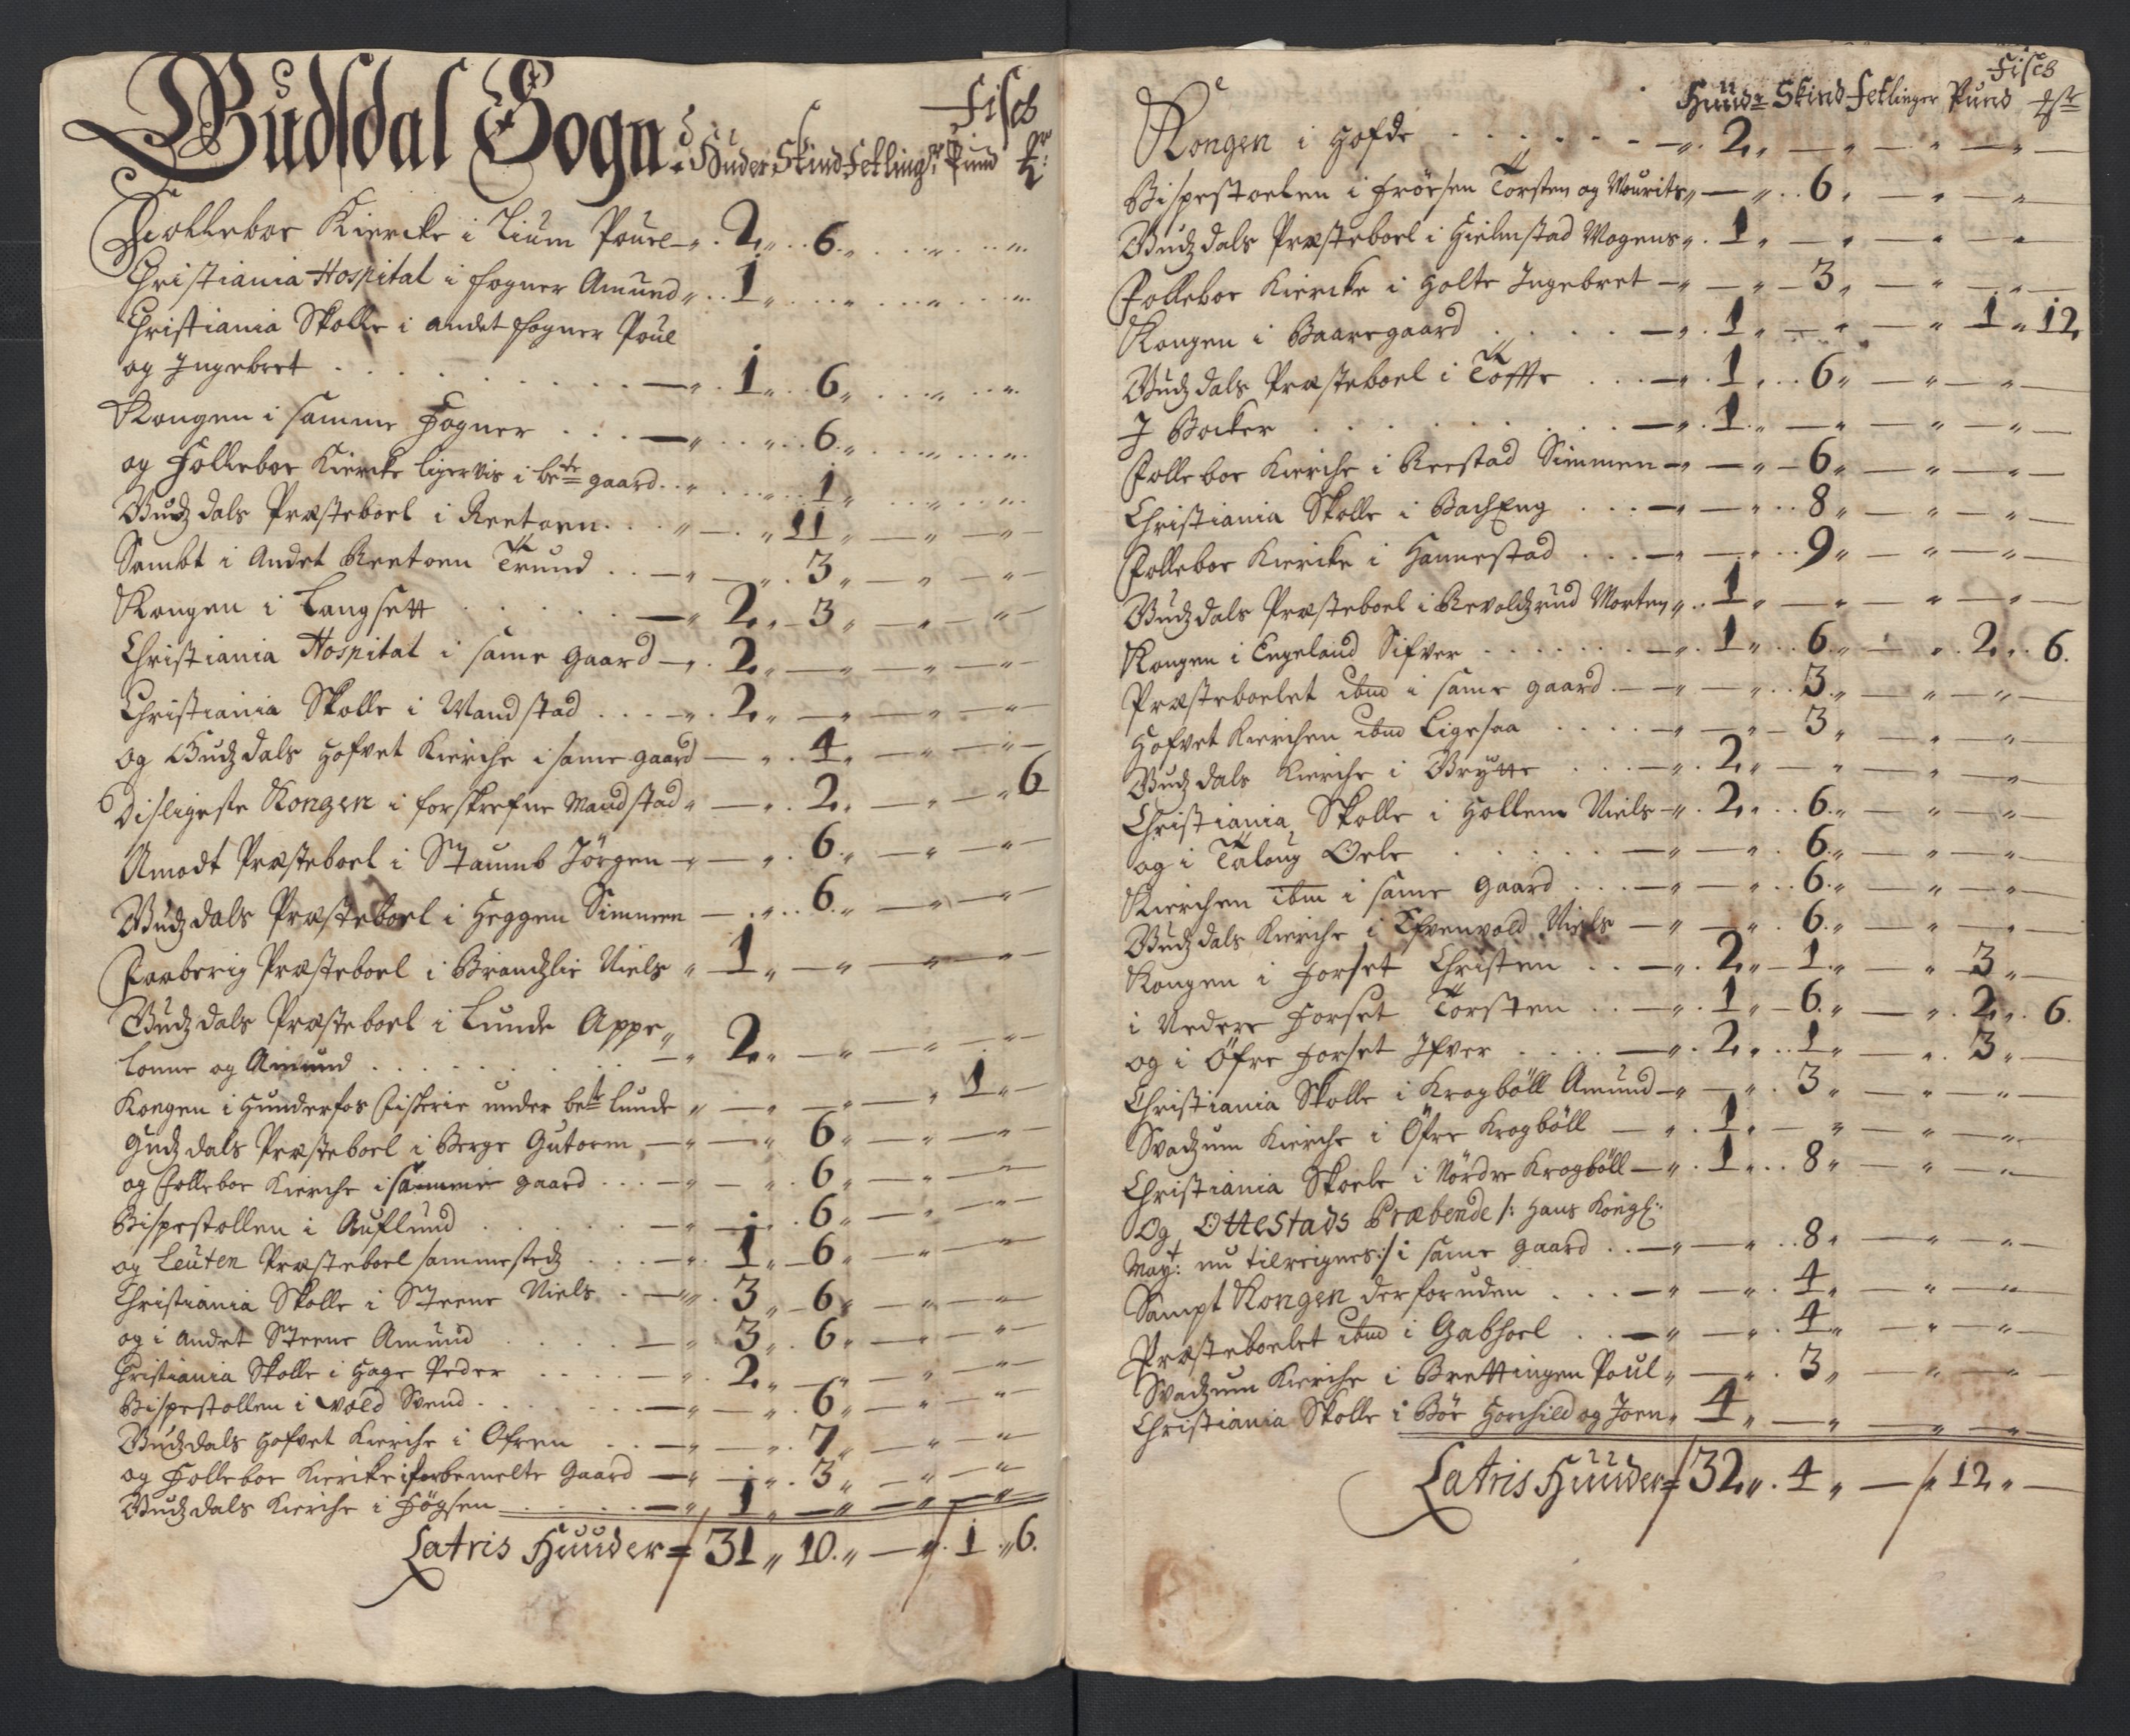 Gudsdal Sogn. Huder Skind Fetlingr Fisch Pund ℔r
Folleboe Kiercke i Lium Pouel 2 6
Christiania Hospital i Fogner Amund 1
Christiania Skolle i andet Fogner Poul
og Ingebret 1 6
Kongen i samme Fogner 6
og Folleboe Kiercke ligervis i bete gaard 1
Gudzdals Præsteboel i Rentoen 11
Sambt i Andet Rentoen Trund 3
Kongen i Langsett 2 3
Christiania Hospital i same gaard 2
Christiania Skolle i Mandstad 2
og Gudzdals Hofvet Kierche i same gaard 4
Disligeste Kongen i forskrefne Mandstad 2 6
Amodt Præsteboel i Staumb Jörgen 6
Gudzdals Præsteboel i Heggen Simmen 6
Faaberig Præsteboel i Brandzlie Niels 1
Gudzdals Præsteboel i Lunde Appe
lonne og Amund 2
Kongen i Hunderfos Fiskerie under bete Lunde 1
Gudzdals Præsteboel i Berge Gutorm 6
og Folleboe Kierche i samme gaard 6
Bispestollen i Auflund 6
og Leuten Præsteboel sammestedz 1 6
Christiania Skolle i Steene Niels 3 6
og i andet Steene Amund 3 6
Christiania Skolle i Hage Peder 2
Bispestollen i Vold Svend 6
Gudzdals Hofvet Kierche i Ofren 7
og Folleboe Kiercke i forbemelte Gaard 3
Gudzdals Kierche i Högsen 1
Latris Huuder 31 10 1 6
Huudr Skind Fetlinger Fisch Pund ℔r
Kongen i Hofde 2
Bispestoelen i Frösen Torsten og Mourits 6
Gudzdals Præsteboel i Hielmstad Mogens 1
Folleboe Kiercke i Holte Ingebret 3
Kongen i Baaregaard 1 1 12
Gudzdals Præsteboel i Tofte 1 6
I Bocker 1
Folleboe Kierche i Reestad Simmen 6
Christiania Skolle i BachEng 8
Folleboe Kiercke i Hannestad 9
Gudzdals Præsteboel i Revoldzrud Morten 1
Kongen i Engeland Sifver 1 6 2 6
Præsteboelet ibm i same gaard 3
Hofvet Kierchen ibm Ligesaa 3
Gudzdals Kierche i Brytte 2
Christiania Skolle i Hollem Niels 2 6
og i Taloug Oele 6
Kierchen ibm i same gaard 6
Gudzdals Kierche i Niels 6
Kongen i Forset Christen 2 1 3
i Nedere Forset Torsten 1 6 2 6
og i Öfre Forset Ifver 2 1 3
Christiania Skolle i Krogböll Amund 3
Svadzum Kierche i Öfre Krogböll 1
Christiania Skoele i Nördre Krogböll 1 8
Og Ottestads Præbende /: Hans Kongl:
Mayt: nu tilreignes:/ i same gaard 8
Sampt Kongen derforuden 4
Præsteboelet ibm i Gabhoel 4
Svadzum Kierche i Brettingen Poul 3
Christiania Skolle i Böe Horchild og Joen 4
Latris Huuder 32 4 12